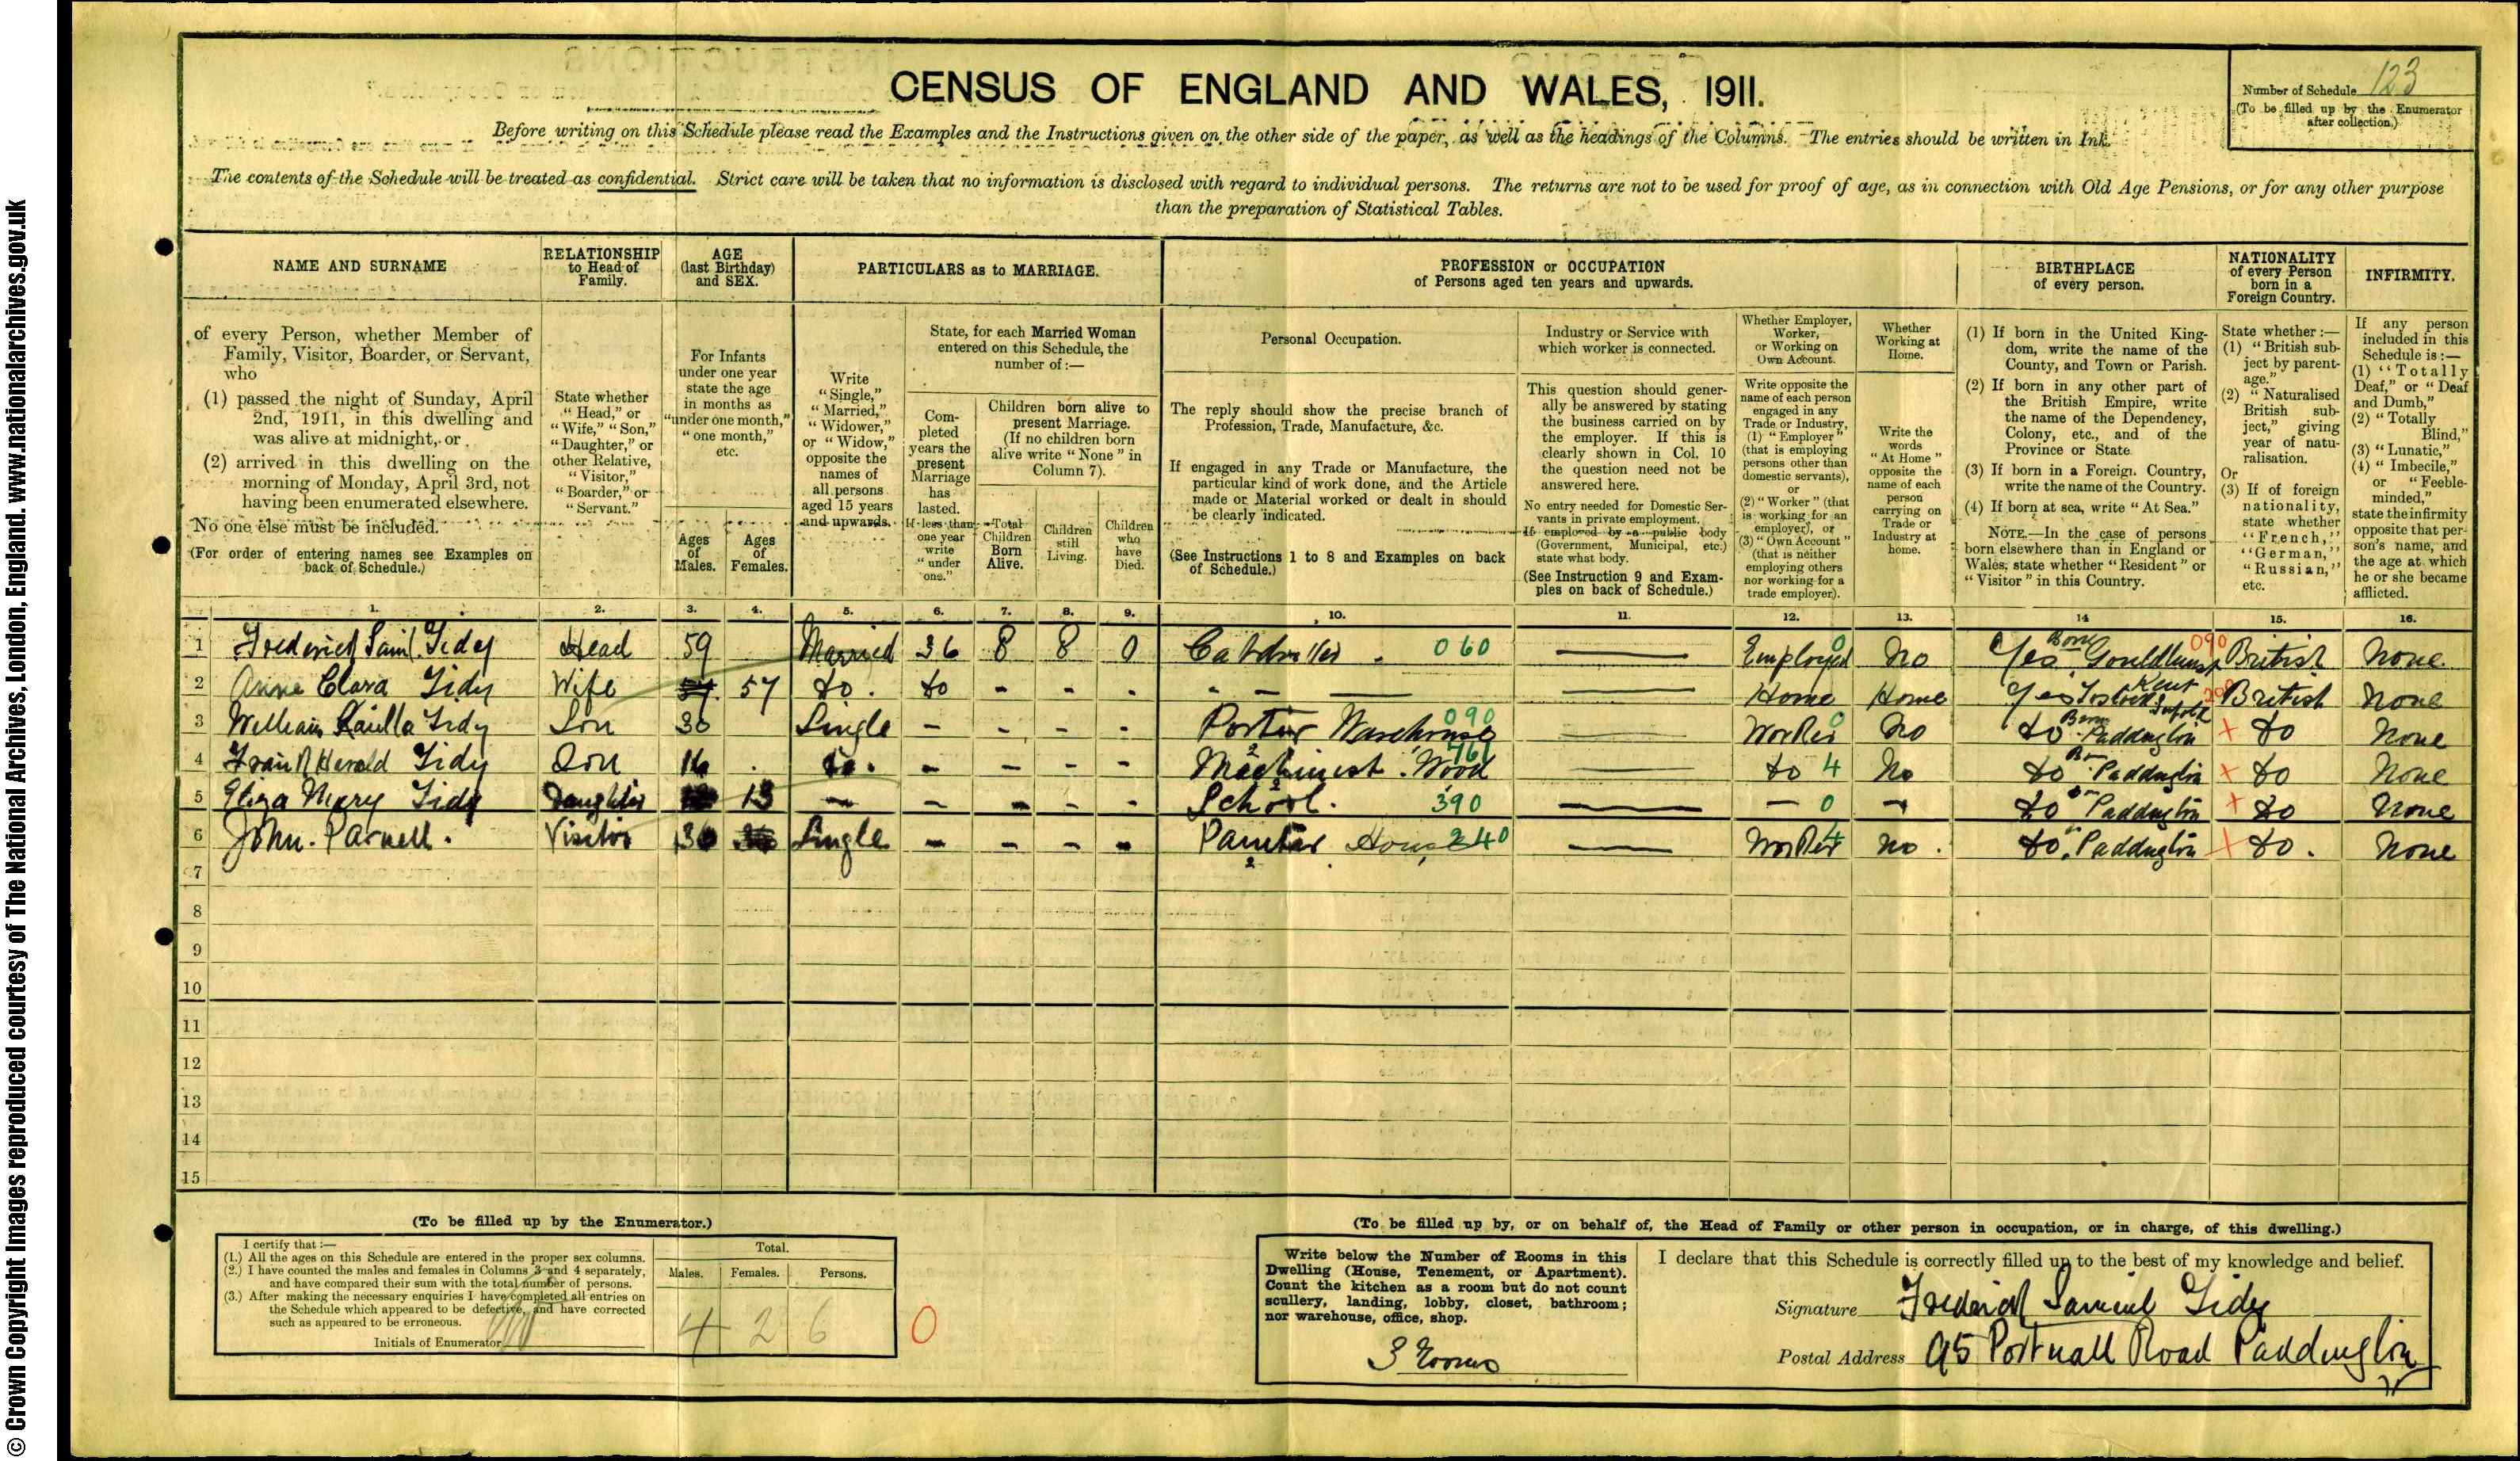 © Crown Copyright Images reproduced courtesy of The National Archives, London, England. www.nationalarchives.gov.uk
CENSUS OF ENGLAND AND WALES, 1911.
Number of Schedule 123
(To be filled up by the Enumerator after collection.)
Before writing on this Schedule please read the Examples and the Instructions given on the other side of the paper, as well as the headings of the Columns. The entries should be written in Ink.
The contents of the Schedule will be treated as confidential. Strict care will be taken that no information is disclosed with regard to individual persons. The returns are not to be used for proof of age, as in connection with Old Age Pensions, or for any other purpose
than the preparation of Statistical Tables.
NAME AND SURNAME
RELATIONSHIP to Head of Family.
AGE (last Birthday) and SEX.
PARTICULARS as to MARRIAGE.
PROFESSION or OCCUPATION of Persons aged ten years and upwards.
BIRTHPLACE of every person.
NATIONALITY of every Person born in a Foreign Country.
INFIRMITY.
of every Person, whether Member of
Family, Visitor, Boarder, or Servant,
who
(1) passed the night of Sunday, April
2nd, 1911, in this dwelling and
was alive at midnight, or
(2) arrived in this dwelling on the
morning of Monday, April 3rd, not
having been enumerated elsewhere.
No one else must be included.
(For order of entering names see Examples on
back of Schedule.)
State whether
"Head," or
"Wife," "Son,"
"Daughter," or
other Relative,
"Visitor,"
"Boarder," or
"Servant."
For Infants
under one year
state the age
in months as
"under one month,"
"one month,"
etc.
Ages of Males.
Ages of Females.
Write
"Single,"
"Married,"
"Widower,"
or "Widow,"
opposite the
names of
all persons
aged 15 years
and upwards.
State, for each Married Woman
entered on this Schedule, the
number of :—
Com-
pleted
years the
present
Marriage
has
lasted.
If less than
one year
write
"under
one."
Children born alive to
present Marriage.
(If no children born
alive write "None" in
Column 7).
Total
Children
Born
Alive.
Children
still
Living.
Children
who
have
Died.
Personal Occupation.
The reply should show the precise branch of
Profession, Trade, Manufacture, &c.
If engaged in any Trade or Manufacture, the
particular kind of work done, and the Article
made or Material worked or dealt in should
be clearly indicated.
(See Instructions 1 to 8 and Examples on back
of Schedule.)
Industry or Service with
which worker is connected.
This question should gener-
ally be answered by stating
the business carried on by
the employer. If this is
clearly shown in Col. 10
the question need not be
answered here.
No entry needed for Domestic Ser-
vants in private employment.
If employed by a public body
(Government, Municipal, etc.)
state what body.
(See Instruction 9 and Exam-
ples on back of Schedule.)
Whether Employer,
Worker,
or Working on
Own Account.
Write opposite the
name of each person
engaged in any
Trade or Industry,
(1) "Employer"
(that is employing
persons other than
domestic servants),
or
(2) "Worker" (that
is working for an
employer), or
(3) "Own Account"
(that is neither
employing others
nor working for a
trade employer).
Whether
Working at
Home.
Write the
words
"At Home"
opposite the
name of each
person
carrying on
Trade or
Industry at
home.
(1) If born in the United King-
dom, write the name of the
County, and Town or Parish.
(2) If born in any other part of
the British Empire, write
the name of the Dependency,
Colony, etc., and of the
Province or State.
(3) If born in a Foreign Country,
write the name of the Country.
(4) If born at sea, write "At Sea."
NOTE.—In the case of persons
born elsewhere than in England or
Wales, state whether "Resident" or
"Visitor" in this Country.
State whether :—
(1) "British sub-
ject by parent-
age."
(2) "Naturalised
British sub-
ject," giving
year of natu-
ralisation.
Or
(3) If of foreign
nationality,
state whether
"French,"
"German,"
"Russian,"
etc.
If any person
included in this
Schedule is :—
(1) "Totally
Deaf," or "Deaf
and Dumb,"
(2) "Totally
Blind,"
(3) "Lunatic,"
(4) "Imbecile,"
or "Feeble-
minded,"
state the infirmity
opposite that per-
son's name, and
the age at which
he or she became
afflicted.
1. 2. 3. 4. 5. 6. 7. 8. 9. 10. 11. 12. 13. 14 15. 16.
1 Frederick Saml. Tidey Head 59 Married 36 8 8 0 060 Employed 0 No Yes Born 090 British None
2 Anne Clara Tidy Wife 57 do. do - - - - — — Home Home Yes Kent Suffolk British None
3 William Tidy Son 30 Single - - - - Porter Warehouse 090 Worker 0 No do Born Paddington × do None
4 Frank Herald Tidy Son 16 do. - - - - Machinist Wood 761 do 4 No do Paddington × do None
5 Eliza Mary Tidy Daughter 13 — - - - - School. 390 — 0 — do Paddington × do None
6 John. Parnell. Visitor 36 Single - - - - Painter House 240 Worker 4 No. do. Paddington × do. None
7
8
9
10
11
12
13
14
15
(To be filled up by the Enumerator.)
I certify that :—
(1.) All the ages on this Schedule are entered in the proper sex columns.
(2.) I have counted the males and females in Columns 3 and 4 separately,
and have compared their sum with the total number of persons.
(3.) After making the necessary enquiries I have completed all entries on
the Schedule which appeared to be defective, and have corrected
such as appeared to be erroneous.
Initials of Enumerator
Total.
Males. Females. Persons.
4 2 6 0
(To be filled up by, or on behalf of, the Head of Family or other person in occupation, or in charge, of this dwelling.)
Write below the Number of Rooms in this
Dwelling (House, Tenement, or Apartment).
Count the kitchen as a room but do not count
scullery, landing, lobby, closet, bathroom;
nor warehouse, office, shop.
3 Rooms
I declare that this Schedule is correctly filled up to the best of my knowledge and belief.
Signature Frederick Samuel Tidey
Postal Address 95 Portnall Road Paddington W